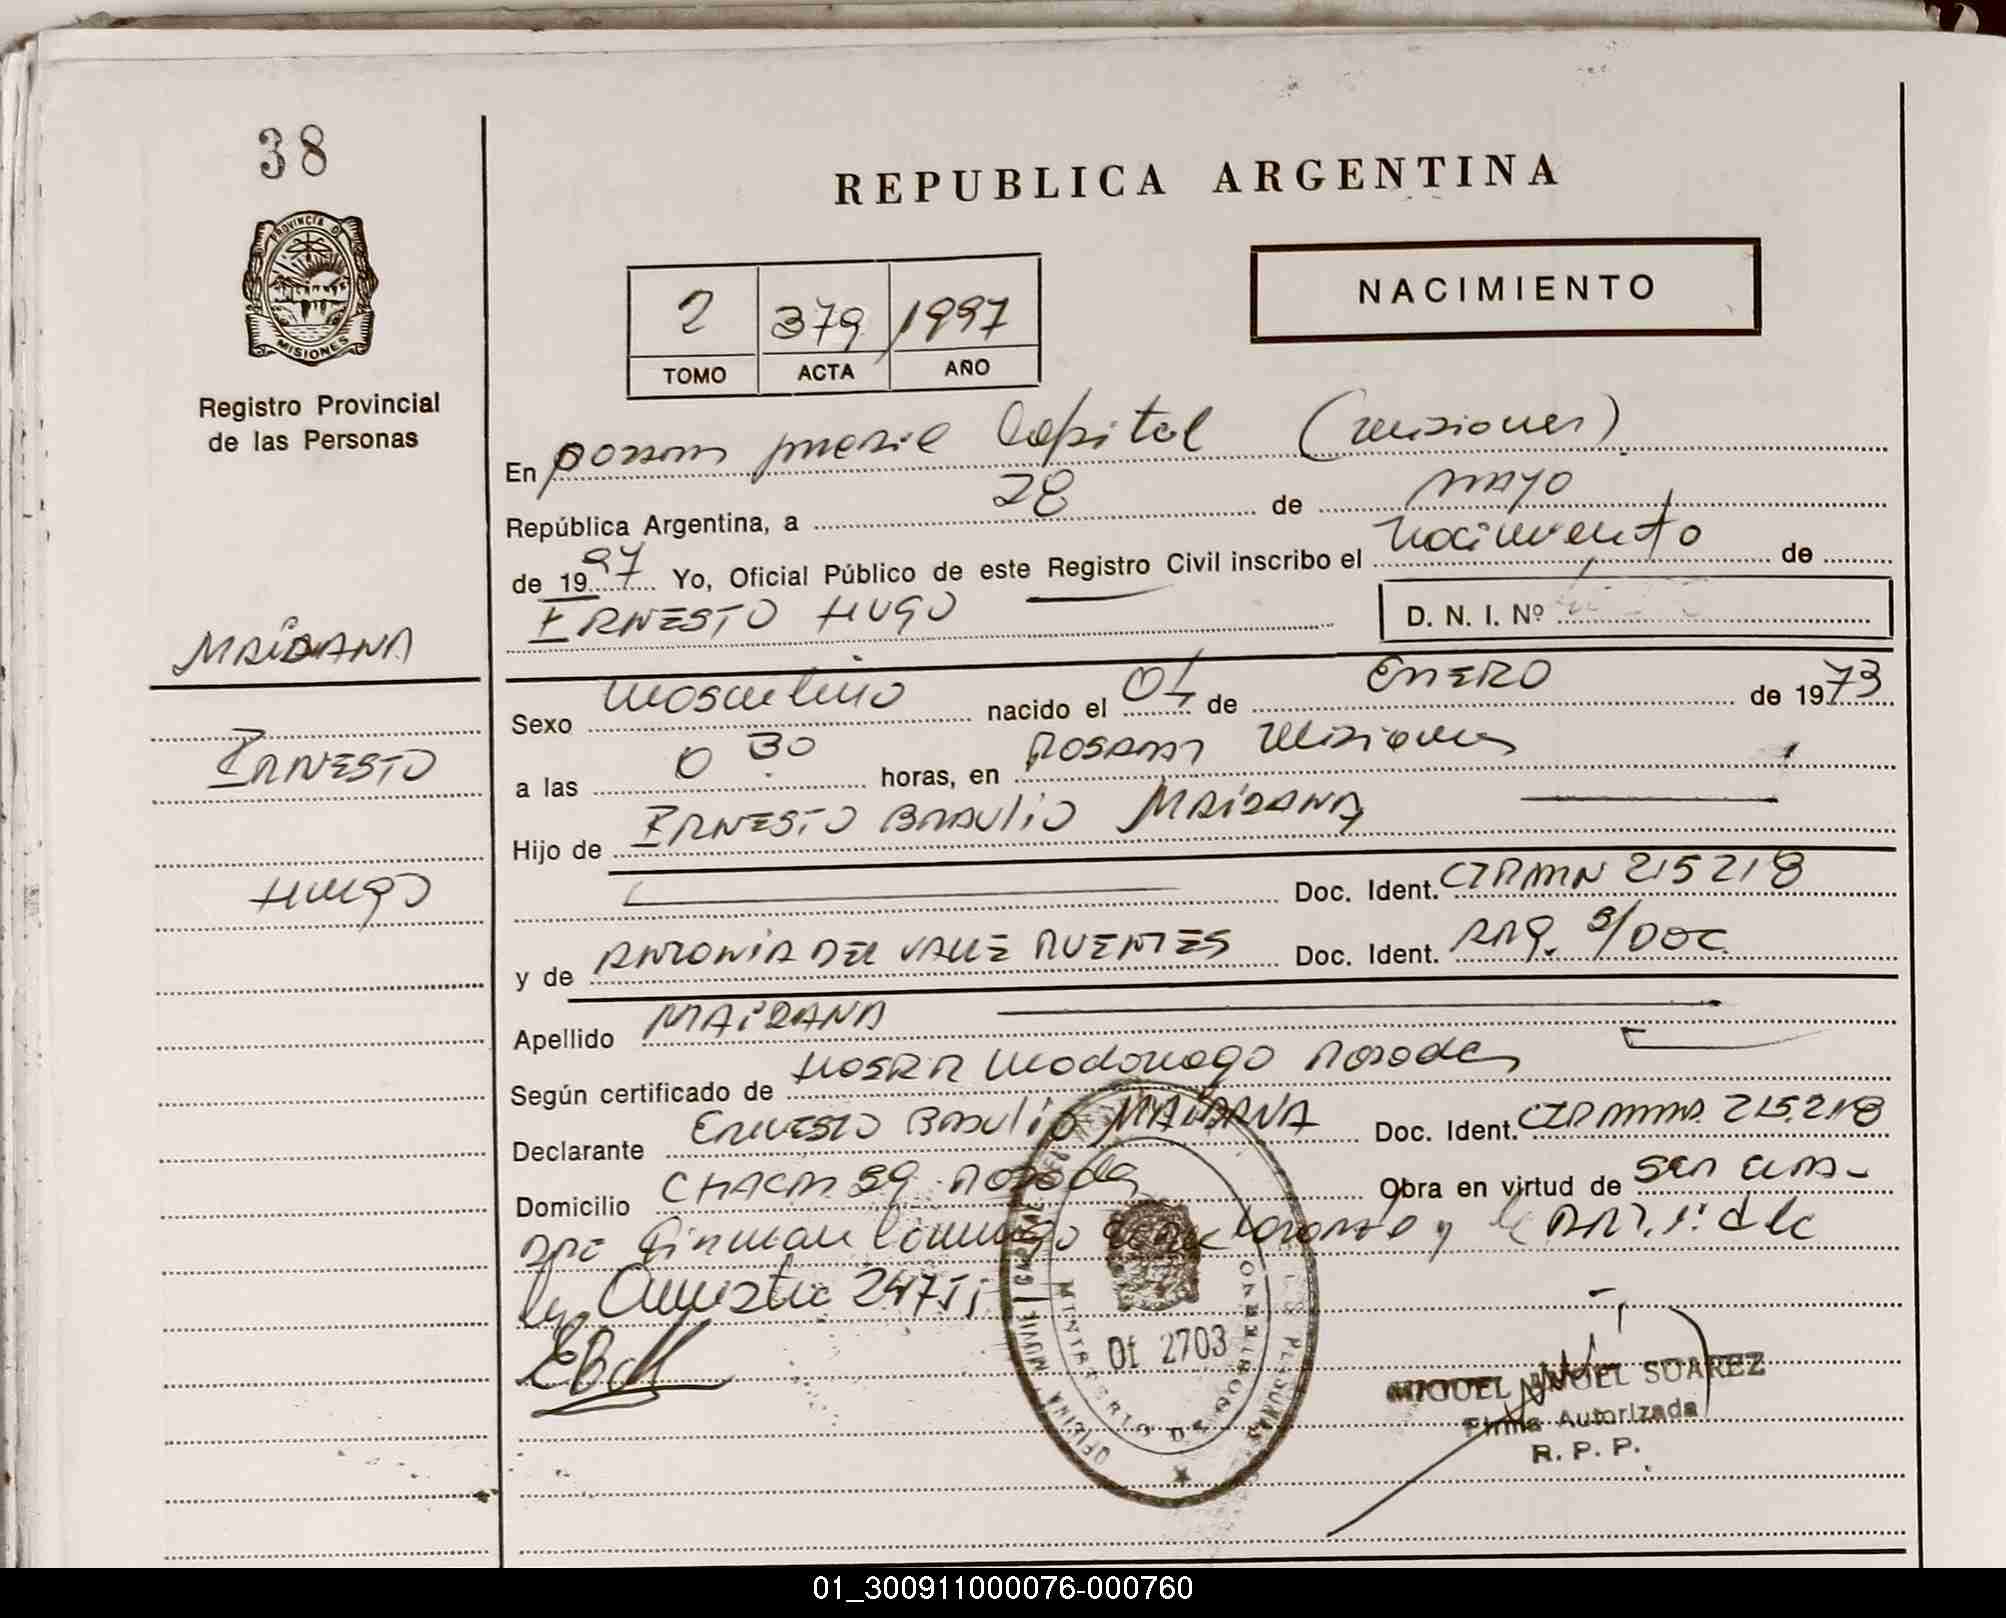 38
REPUBLICA ARGENTINA
PROVINCIA DE
MISIONES
Registro Provincial
de las Personas
2 379 1997
TOMO ACTA AÑO
NACIMIENTO
En Capital (Misiones)
República Argentina, a 28 de mayo
de 1997 Yo, Oficial Público de este Registro Civil inscribo el nacimiento de
ERNESTO HUGO
D. N. I. Nº
MAIDANA
ERNESTO
HUGO
Sexo Masculino nacido el 04 de ENERO de 1973
a las 0 30 horas, en Posadas Misiones
Hijo de ERNESTO BRAULIO MAIDANA
Doc. Ident. 215218
y de ANTONIA DEL VALLE FUENTES Doc. Ident. ARG. S/DOC.
Apellido MAIDANA
Según certificado de Madariaga Posadas
Declarante ERNESTO BRAULIO MAIDANA Doc. Ident. 215.218
Domicilio CHACRA 39 Posadas Obra en virtud de
ley Amnistia
OFICINA MOVIL
MINISTERIO DE GOBIERNO
Of 2703
MIGUEL ANGEL SUAREZ
Firma Autorizada
R. P. P.
01_300911000076-000760